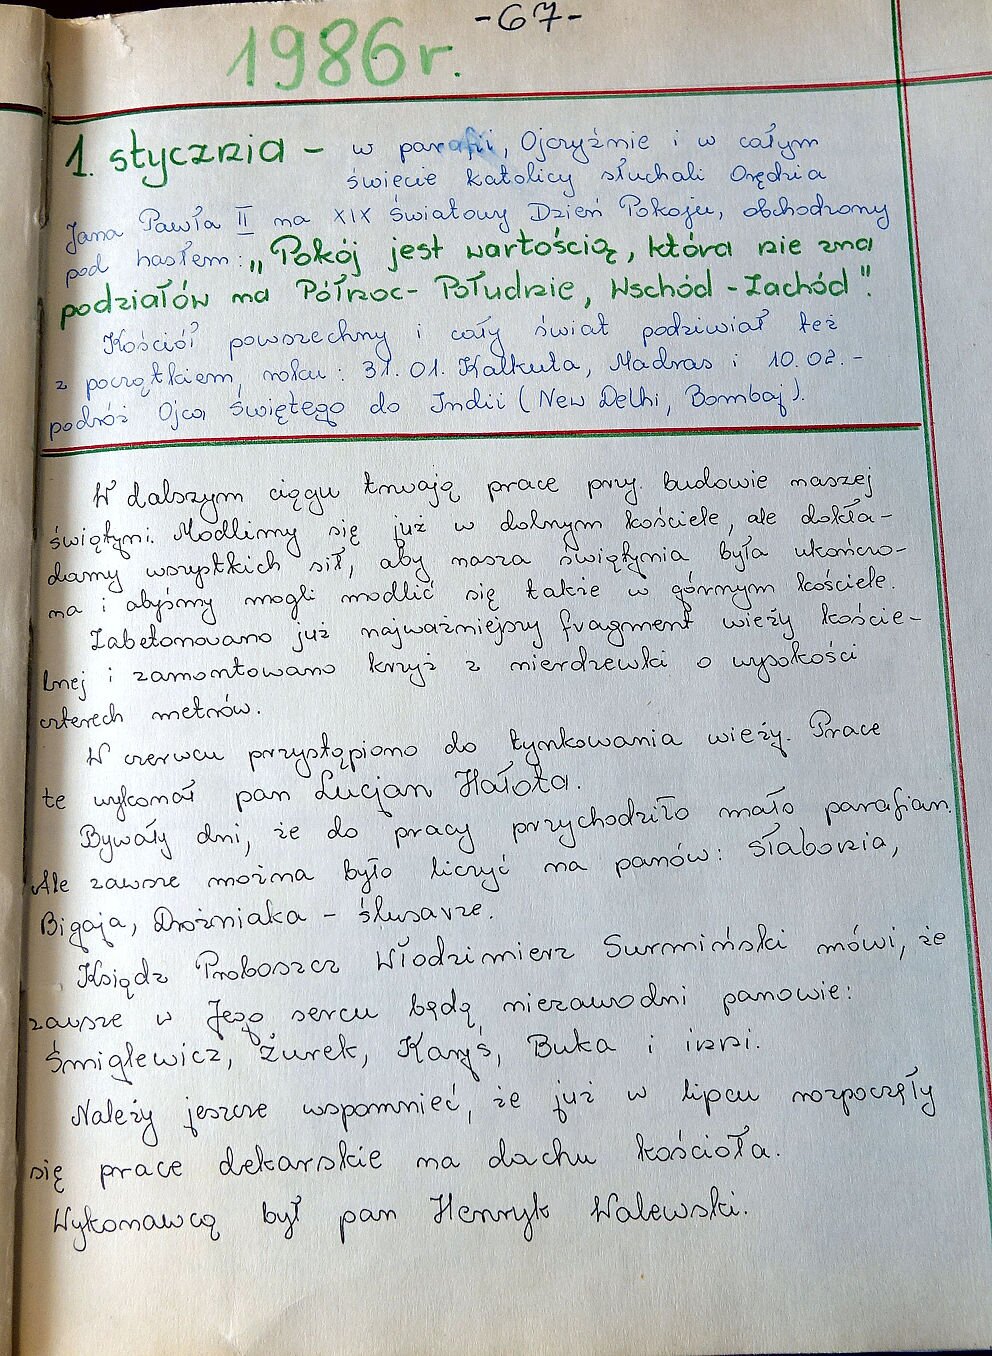 -67-
1986 r.
1. stycznia - w parafii, Ojczyźnie i w całym
świecie katolicy słuchali Orędzia
Jana Pawła II na XIX Światowy Dzień Pokoju, obchodzony
pod hasłem: „Pokój jest wartością, która nie zna
podziałów na Północ- Południe, Wschód - Zachód".
Kościół powszechny i cały świat podziwiał też
z początkiem roku: 31.01. Kalkuta, Madras i 10.02. -
podróż Ojca świętego do Indii (New Delhi, Bombaj).
W dalszym ciągu trwają prace przy budowie naszej
świątyni. Modlimy się już w dolnym kościele, ale dokła-
damy wszystkich sił, aby nasza świątynia była ukończo-
na i abyśmy mogli modlić się także w górnym kościele.
Zabetonowano już najważniejszy fragment wieży koście-
lnej i zamontowano krzyż z nierdzewki o wysokości
czterech metrów.
W czerwcu przystąpiono do tynkowania wieży. Prace
te wykonał pan Lucjan Hałota.
Bywały dni, że do pracy przychodziło mało parafian.
Ale zawsze można było liczyć na panów: Słabonia,
Bigaja, Drożniaka - ślusarze.
Ksiądz Proboszcz Włodzimierz Surmiński mówi, że
zawsze w Jego sercu będą niezawodni panowie:
Śmiglewicz, Żurek, Karyś, Buka i inni.
Należy jeszcze wspomnieć, że już w lipcu rozpoczęły
się prace dekarskie na dachu kościoła.
Wykonawcą był pan Henryk Walewski.